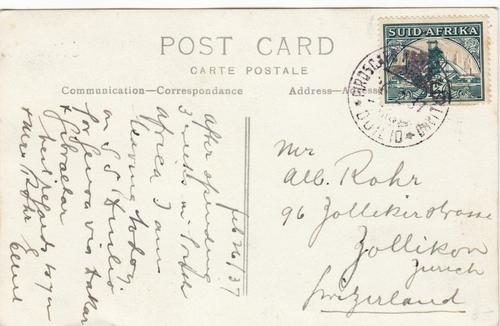 POST CARD
CARTE POSTALE
Communication—Correspondence
Address—Adresse
SUID AFRIKA
DUILIO
Feb 26/37
After spending
3 weeks in South
Africa I am
leaving today
on SS Duilio
for Genoa via Dakar
+ Gibraltar
best regards to you
Mr
Alb. Rohr
96 Zollikerstrasse
Zollikon
Zurich
Switzerland